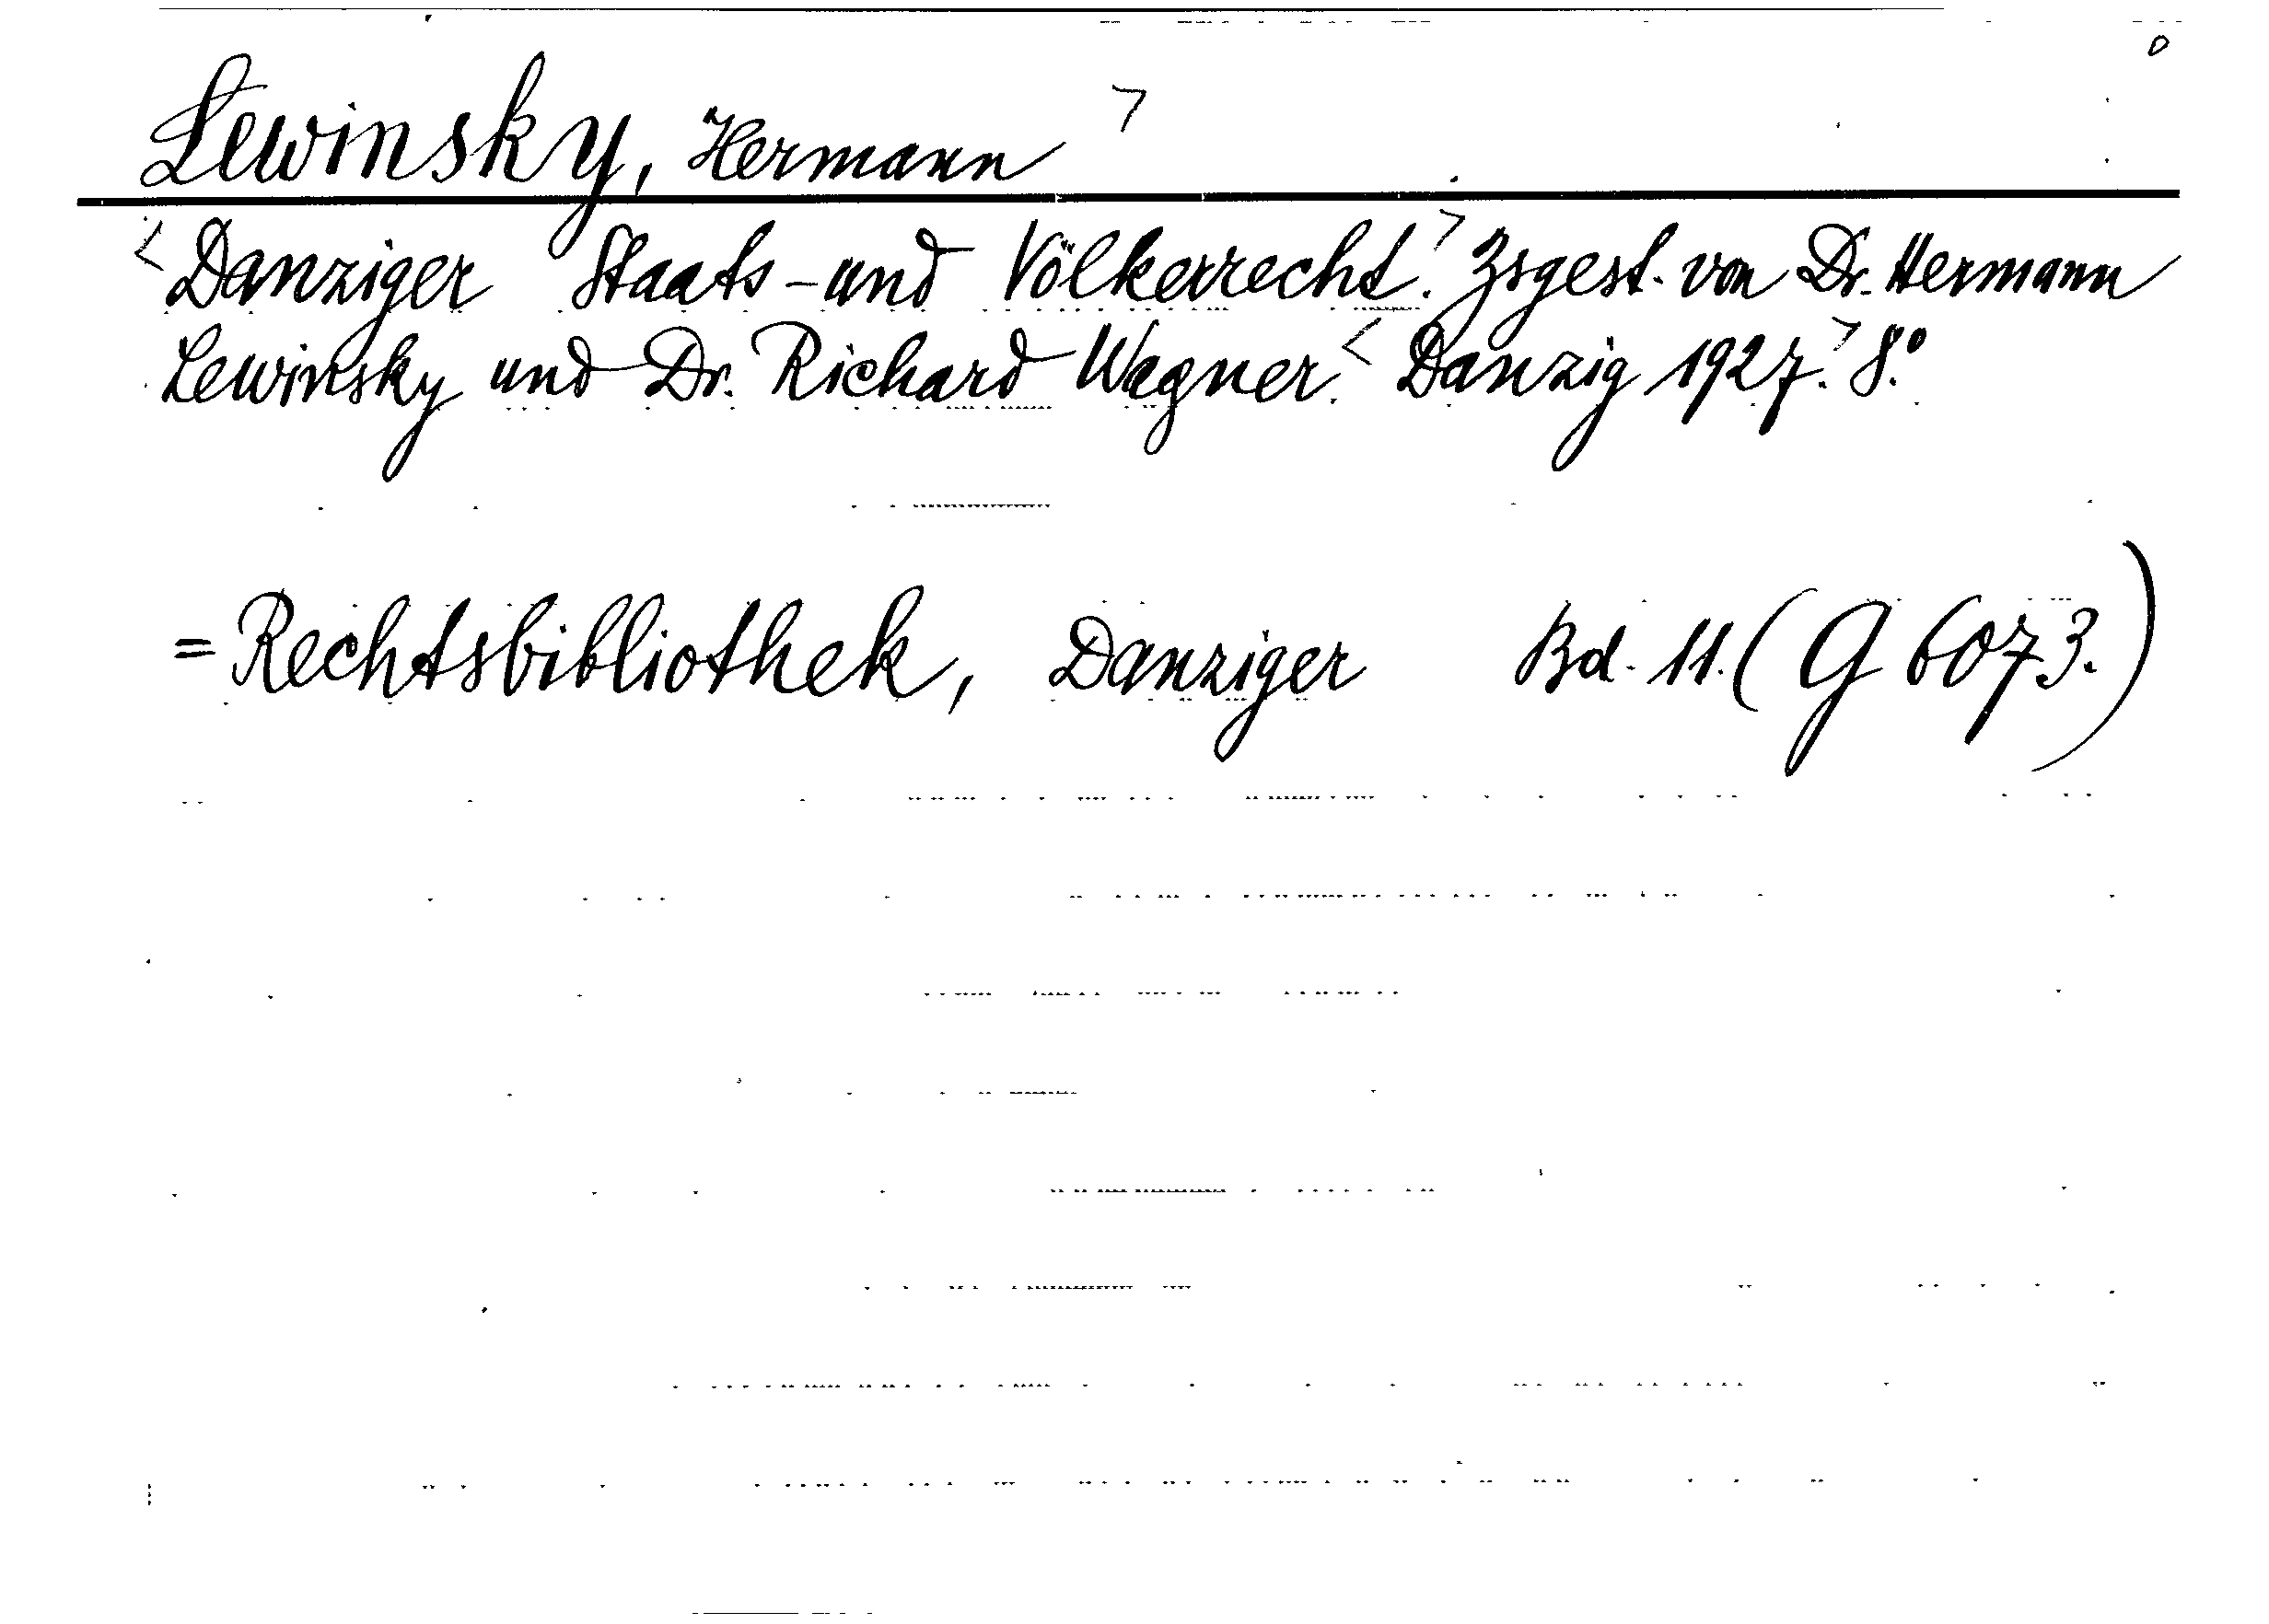 Lewinsky, Hermann >
< Danziger Staats-und Völkerrecht. > Zsgest. von Dr. Hermann
Lewinsky und Dr. Richard Wagner. < Danzig 1927. > 8.°
= Rechtsbibliothek, Danziger Bd. 11. (G 6073.)